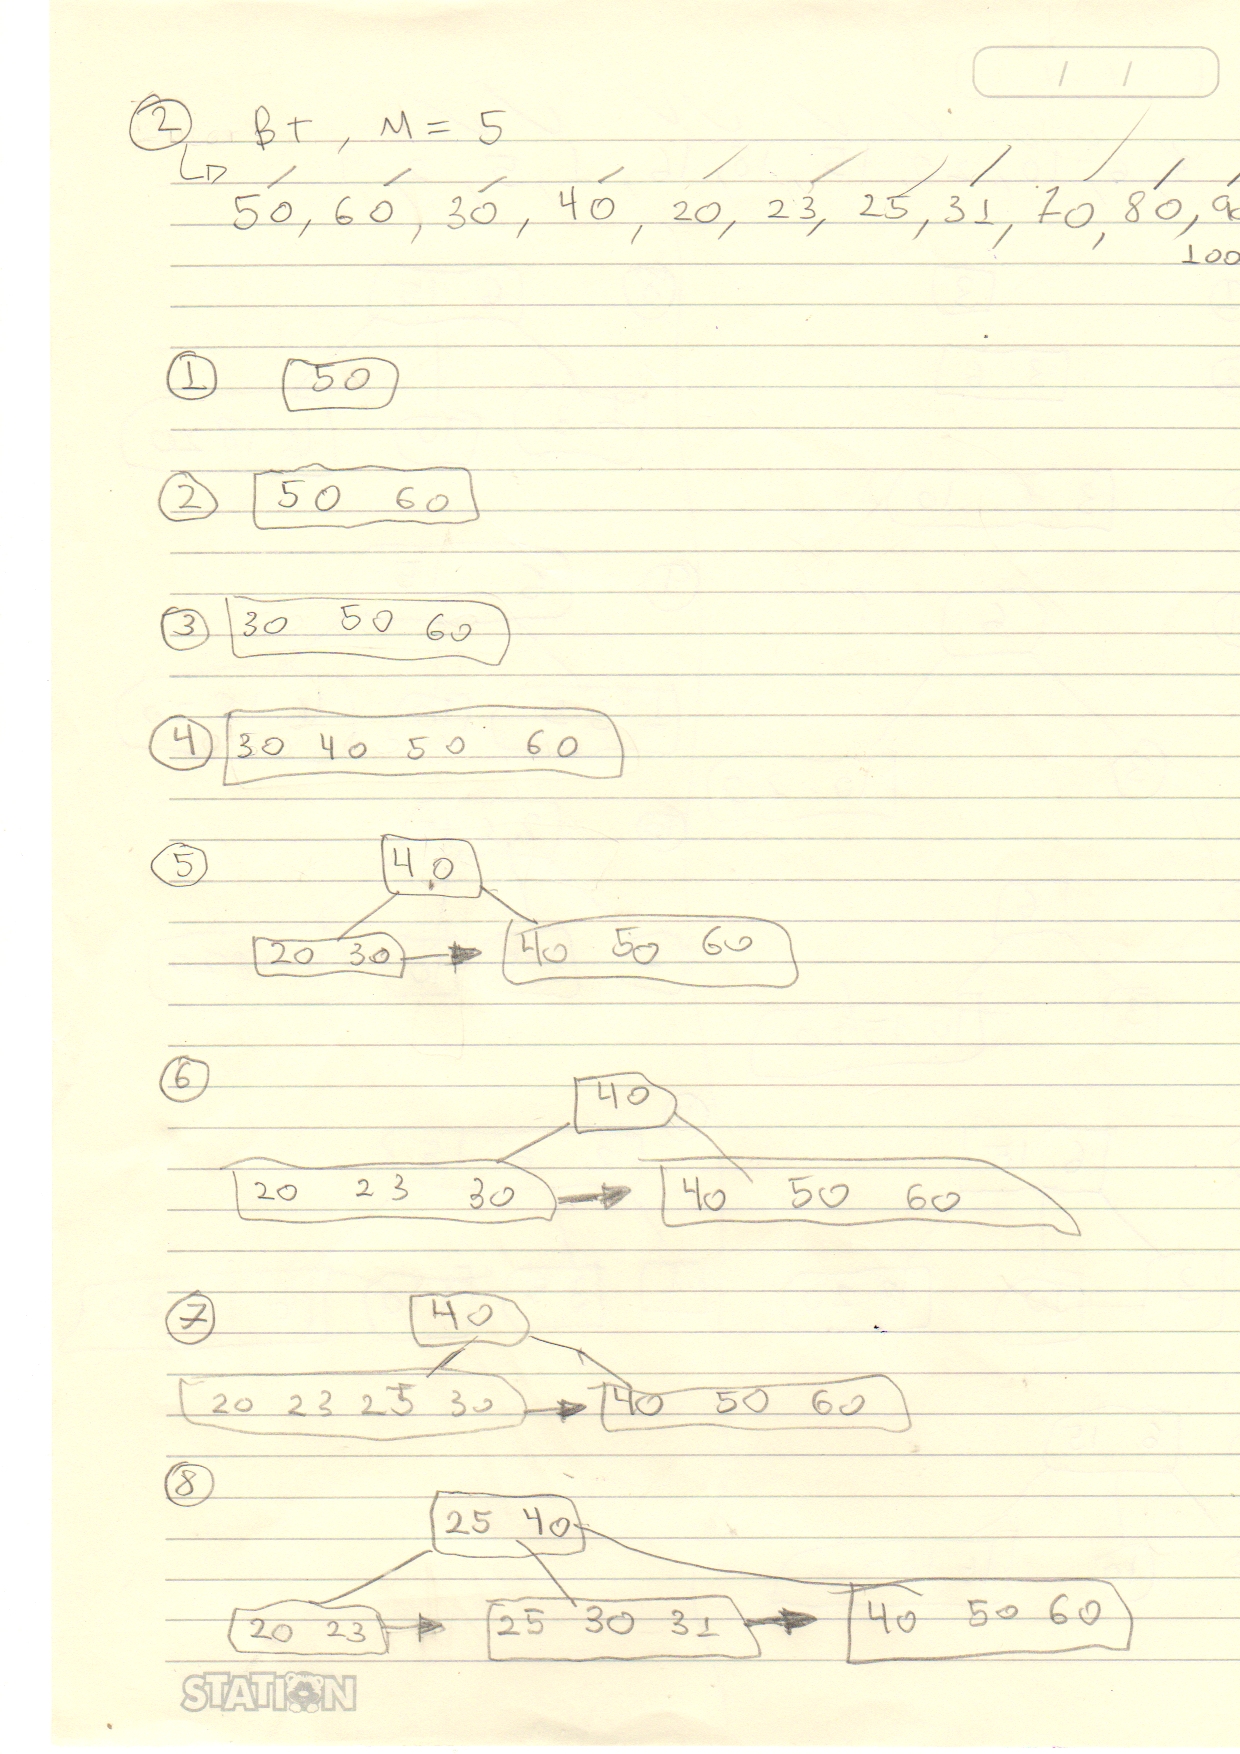 / /
2 B+, M = 5
50, 60, 30, 40, 20, 23, 25, 31, 70, 80, 90
100
1 50
2 50 60
3 30 50 60
4 30 40 50 60
5 40
20 30 40 50 60
6 40
20 23 30 40 50 60
7 40
20 23 25 30 40 50 60
8 25 40
20 23 25 30 31 40 50 60
STATION